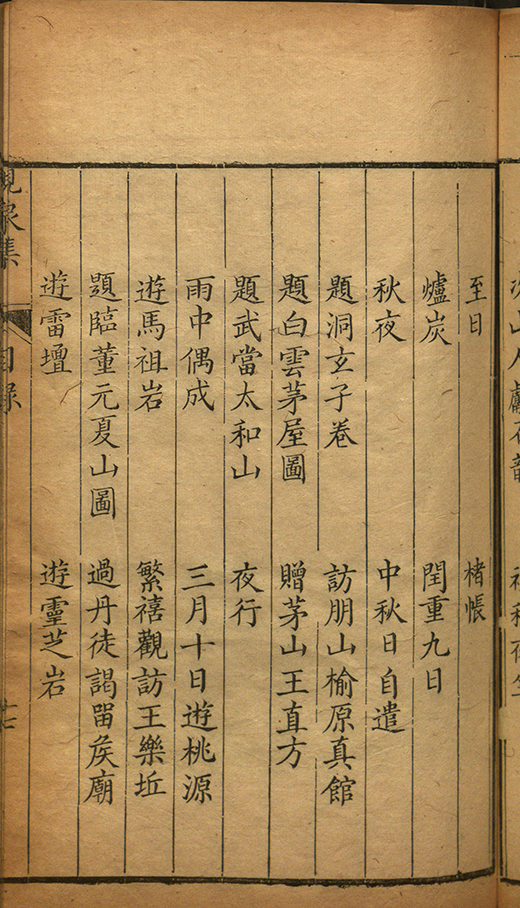 至日 楮帳
爐炭 閏重九日
秋夜 中秋日自遣
題洞玄子卷 訪朋山榆原真館
題白雲茅屋圖 贈茅山王直方
題武當太和山 夜行
雨中偶成 三月十日遊桃源
遊馬祖岩 繁禧觀訪王樂坵
題臨董元夏山圖 過丹徒謁畱矦廟
遊雷壇 遊靈芝岩
泉集 目錄